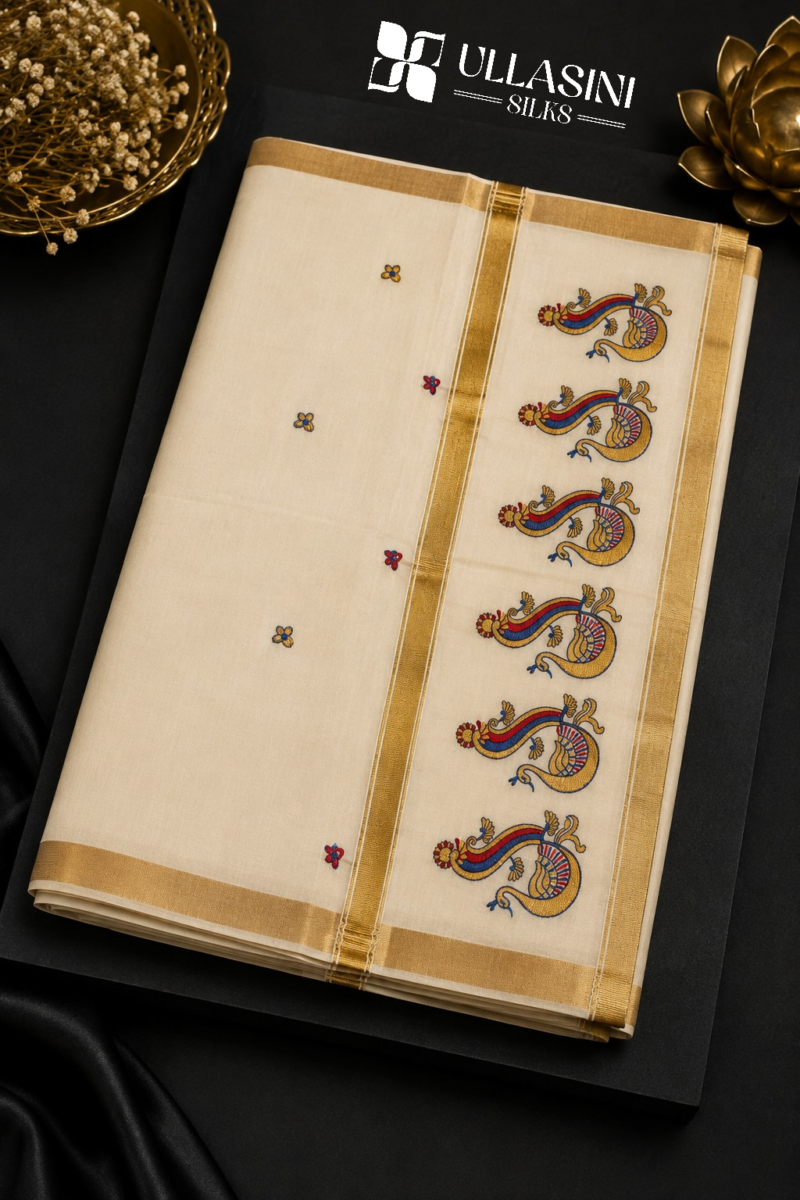 ULLASINI
SILKS